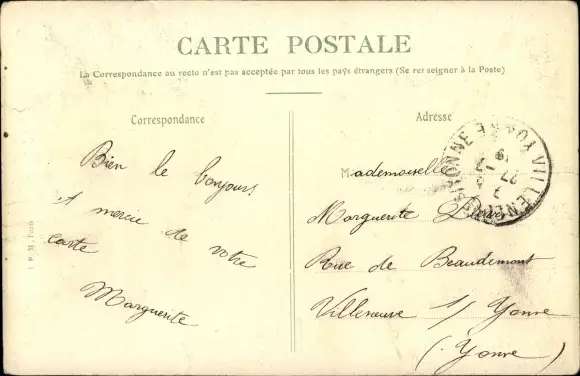 CARTE POSTALE
La Correspondance au recto n'est pas acceptée par tous les pays étrangers (Se renseigner à la Poste)
Correspondance
Bien le bonjour
et mercie de votre
carte
Marguerite
I P. M. Paris
Adresse
Mademoiselle
Marguerite
Rue de Beaudemont
Villeneuve s/ Yonne
(Yonne)
YONNE